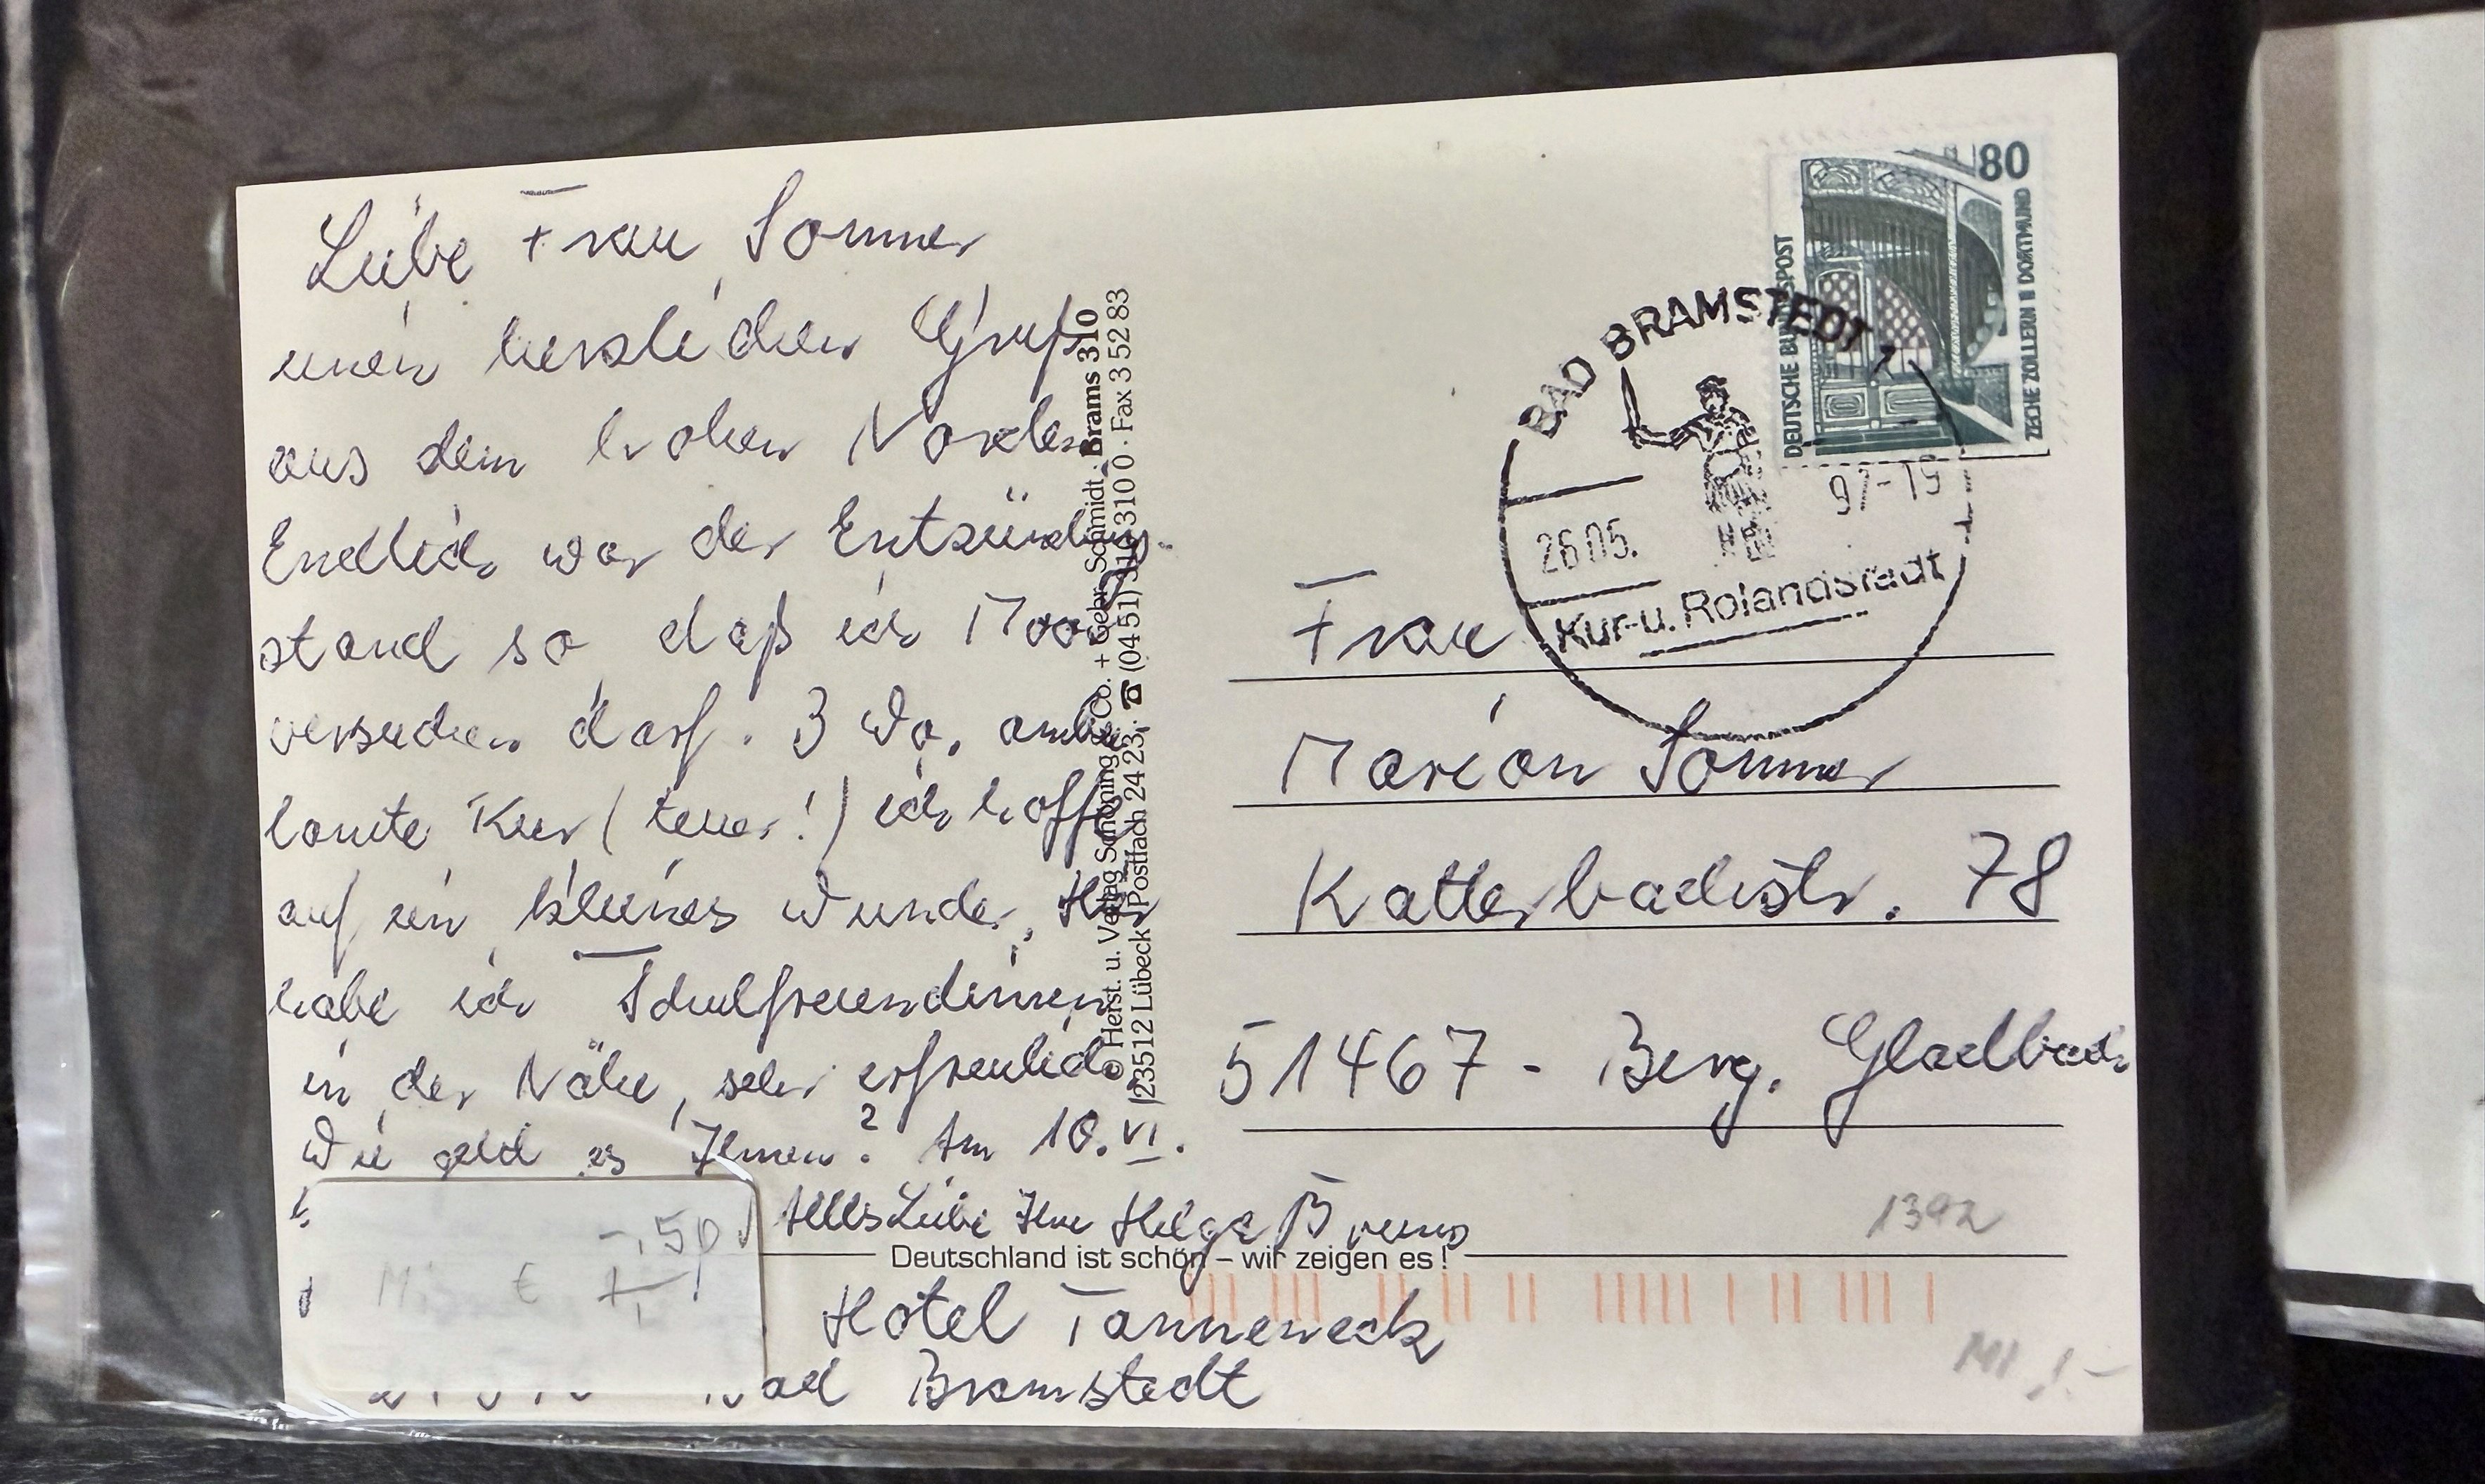 Liebe Frau Sommer
einen herzlichen Gruß
aus dem hohen Norden
Endlich war der Entzündungs-
stand so, daß ich Moor
versuchen darf. 3 Wo. ambu-
lante Kur (teuer!) ich hoffe
auf ein kleines Wunder. Hier
habe ich Schulfreundinnen
in der Nähe, sehr erfreulich.
Wie geht es Ihnen? Am 10. VI.
Alles Liebe Ihre Helga
Hotel Tanneneck
Bad Bramstedt
© Herst. u. Verlag Schöning & Co. + Gebr. Schmidt · Brams 310
23512 Lübeck · Postfach 24 23 · ☎ (04 51) 3 10 · Fax 3 52 83
80
DEUTSCHE BUNDESPOST
ZECHE ZOLLERN II DORTMUND
BAD BRAMSTEDT 1
26.05. 97-19
Kur- u. Rolandstadt
Frau
Marion Sommer
Katterbachstr. 78
51467 - Berg. Gladbach
1392
Deutschland ist schön – wir zeigen es!
-,50
€